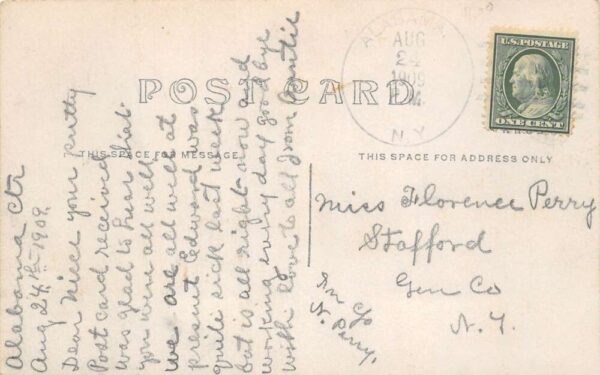 POST CARD
THIS SPACE FOR MESSAGE
THIS SPACE FOR ADDRESS ONLY
ALABAMA
AUG
24
1909
N.Y.
U.S. POSTAGE
ONE CENT
Alabama Ctr
Aug 24th 1909.
Dear Niece your pretty
Post card received
was glad to hear that
you were all well.
we are all well at
present Edward was
quite sick last week
but is all right now and
working every day good bye
with love to all from Auntie
Miss Florence Perry
Stafford
Gen Co
N. Y.
In c/o
N. Perry.